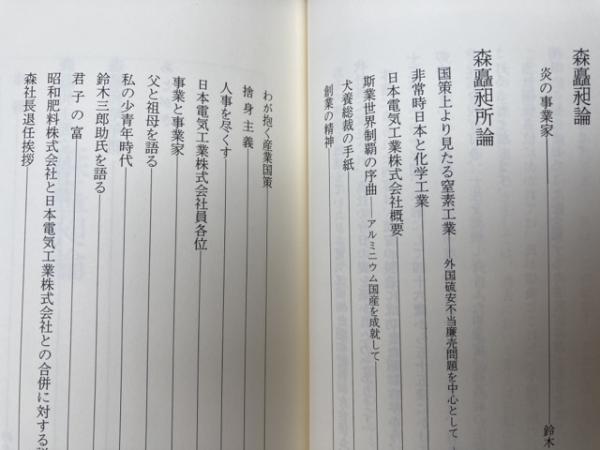 森矗昶論
炎の事業家 鈴木
森矗昶所論
国策上より見たる窒素工業 外国硫安不当廉売問題を中心として
非常時日本と化学工業
日本電気工業株式会社概要
斯業世界制覇の序曲 アルミニウム国産を成就して
犬養総裁の手紙
創業の精神
わが抱く産業国策
捨身主義
人事を尽くす
日本電気工業株式会社員各位
事業と事業家
父と祖母を語る
私の少青年時代
鈴木三郎助氏を語る
君子の富
昭和肥料株式会社と日本電気工業株式会社との合併に対する
森社長退任挨拶